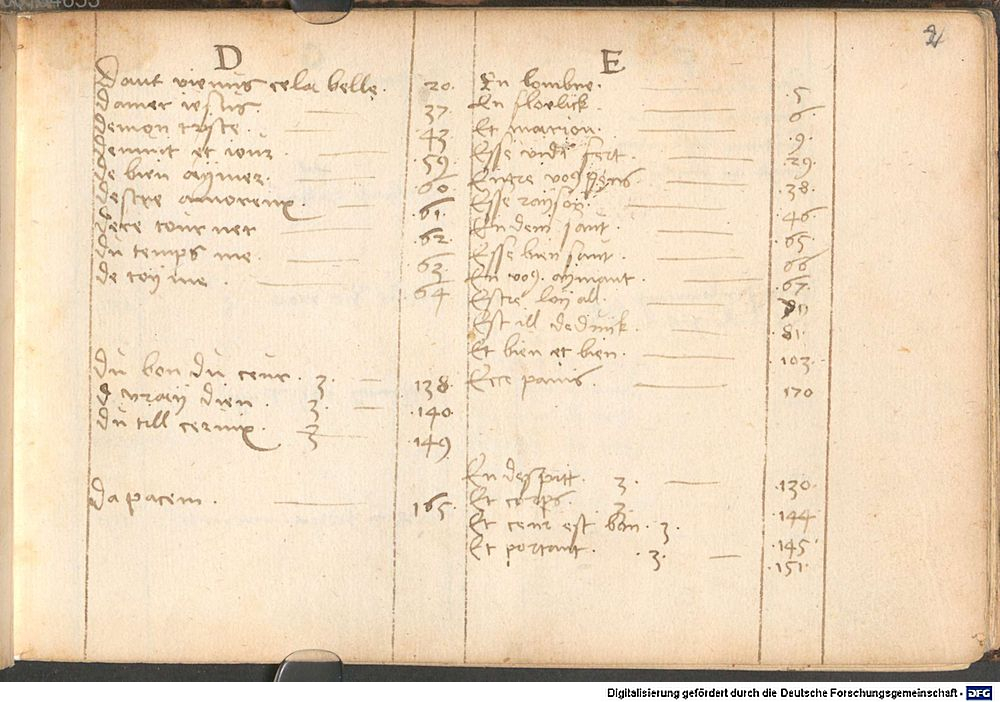 2
D
Dont vienns cela belle. 20.
Damer
Demon triste. 43
et 59.
De bien aymer. 60
Destre amoreux. 61.
tourner 62.
Du temps me. 63.
de toy me. 64
Du bon du ceur. 3. 138.
D vraey dieu. 3. 140
Du till 3 149
Da pacem. 165.
E
En lombre. 5
En 6.
Et marion. 9.
Esse 29.
Entre vos 38.
Esse raÿson 46
En dem sant. 65.
Esse bien sant. 66
En vos. aymant. 67.
Estre loyal.
Est ill deduik. 81.
Et bien et bien. 103.
Ecce panis. 170
En despitt. 3. .130.
Et corps 3 144
Et ceur est bon. 3. .145
Et portant. .3. .151.
Digitalisierung gefördert durch die Deutsche Forschungsgemeinschaft - DFG